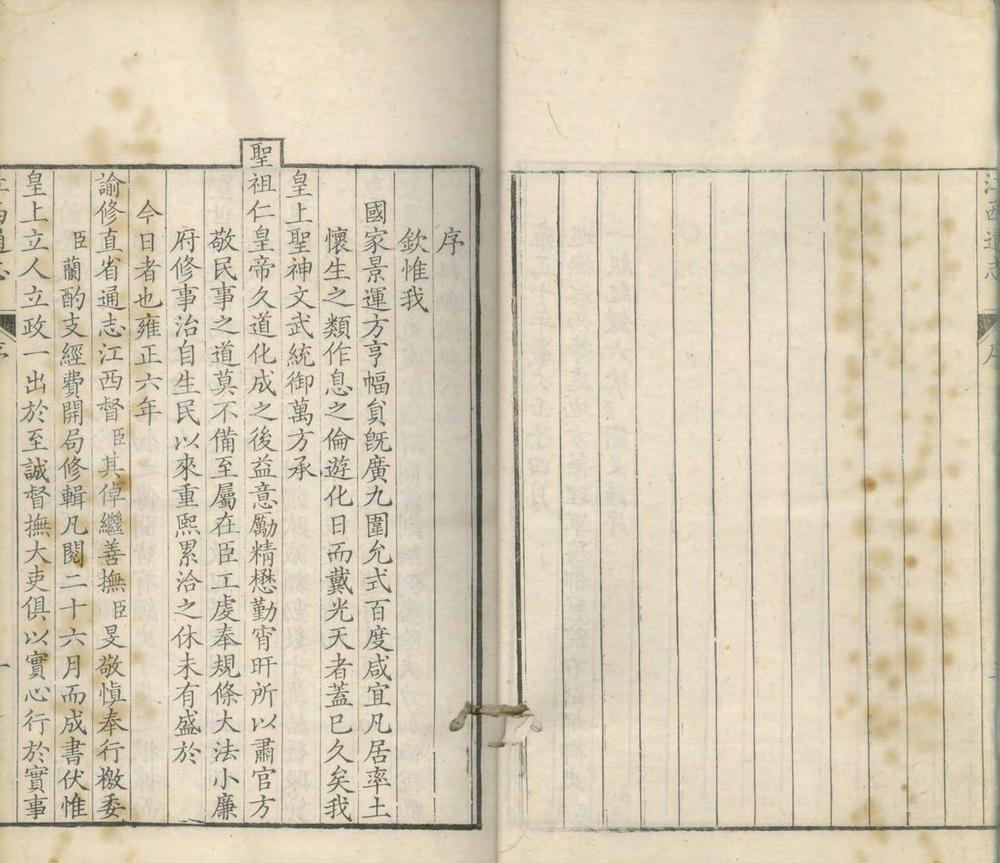 江西通志 序
序
欽惟我
國家景運方亨幅貟旣廣九圍允式百度咸宜凡居率土
懷生之類作息之倫遊化日而戴光天者蓋已久矣我
皇上聖神文武統御萬方承
聖祖仁皇帝久道化成之後益意勵精懋勤宵旰所以肅官方
敬民事之道莫不備至屬在臣工虔奉規條大法小廉
府修事治自生民以來重熙累洽之休未有盛於
今日者也雍正六年
諭修直省通志江西督臣其倬繼善撫臣旻敬愼奉行檄委
臣蘭酌支經費開局修輯凡閱二十六月而成書伏惟
皇上立人立政一出於至誠督撫大吏俱以實心行於實事
江西通志 序 一